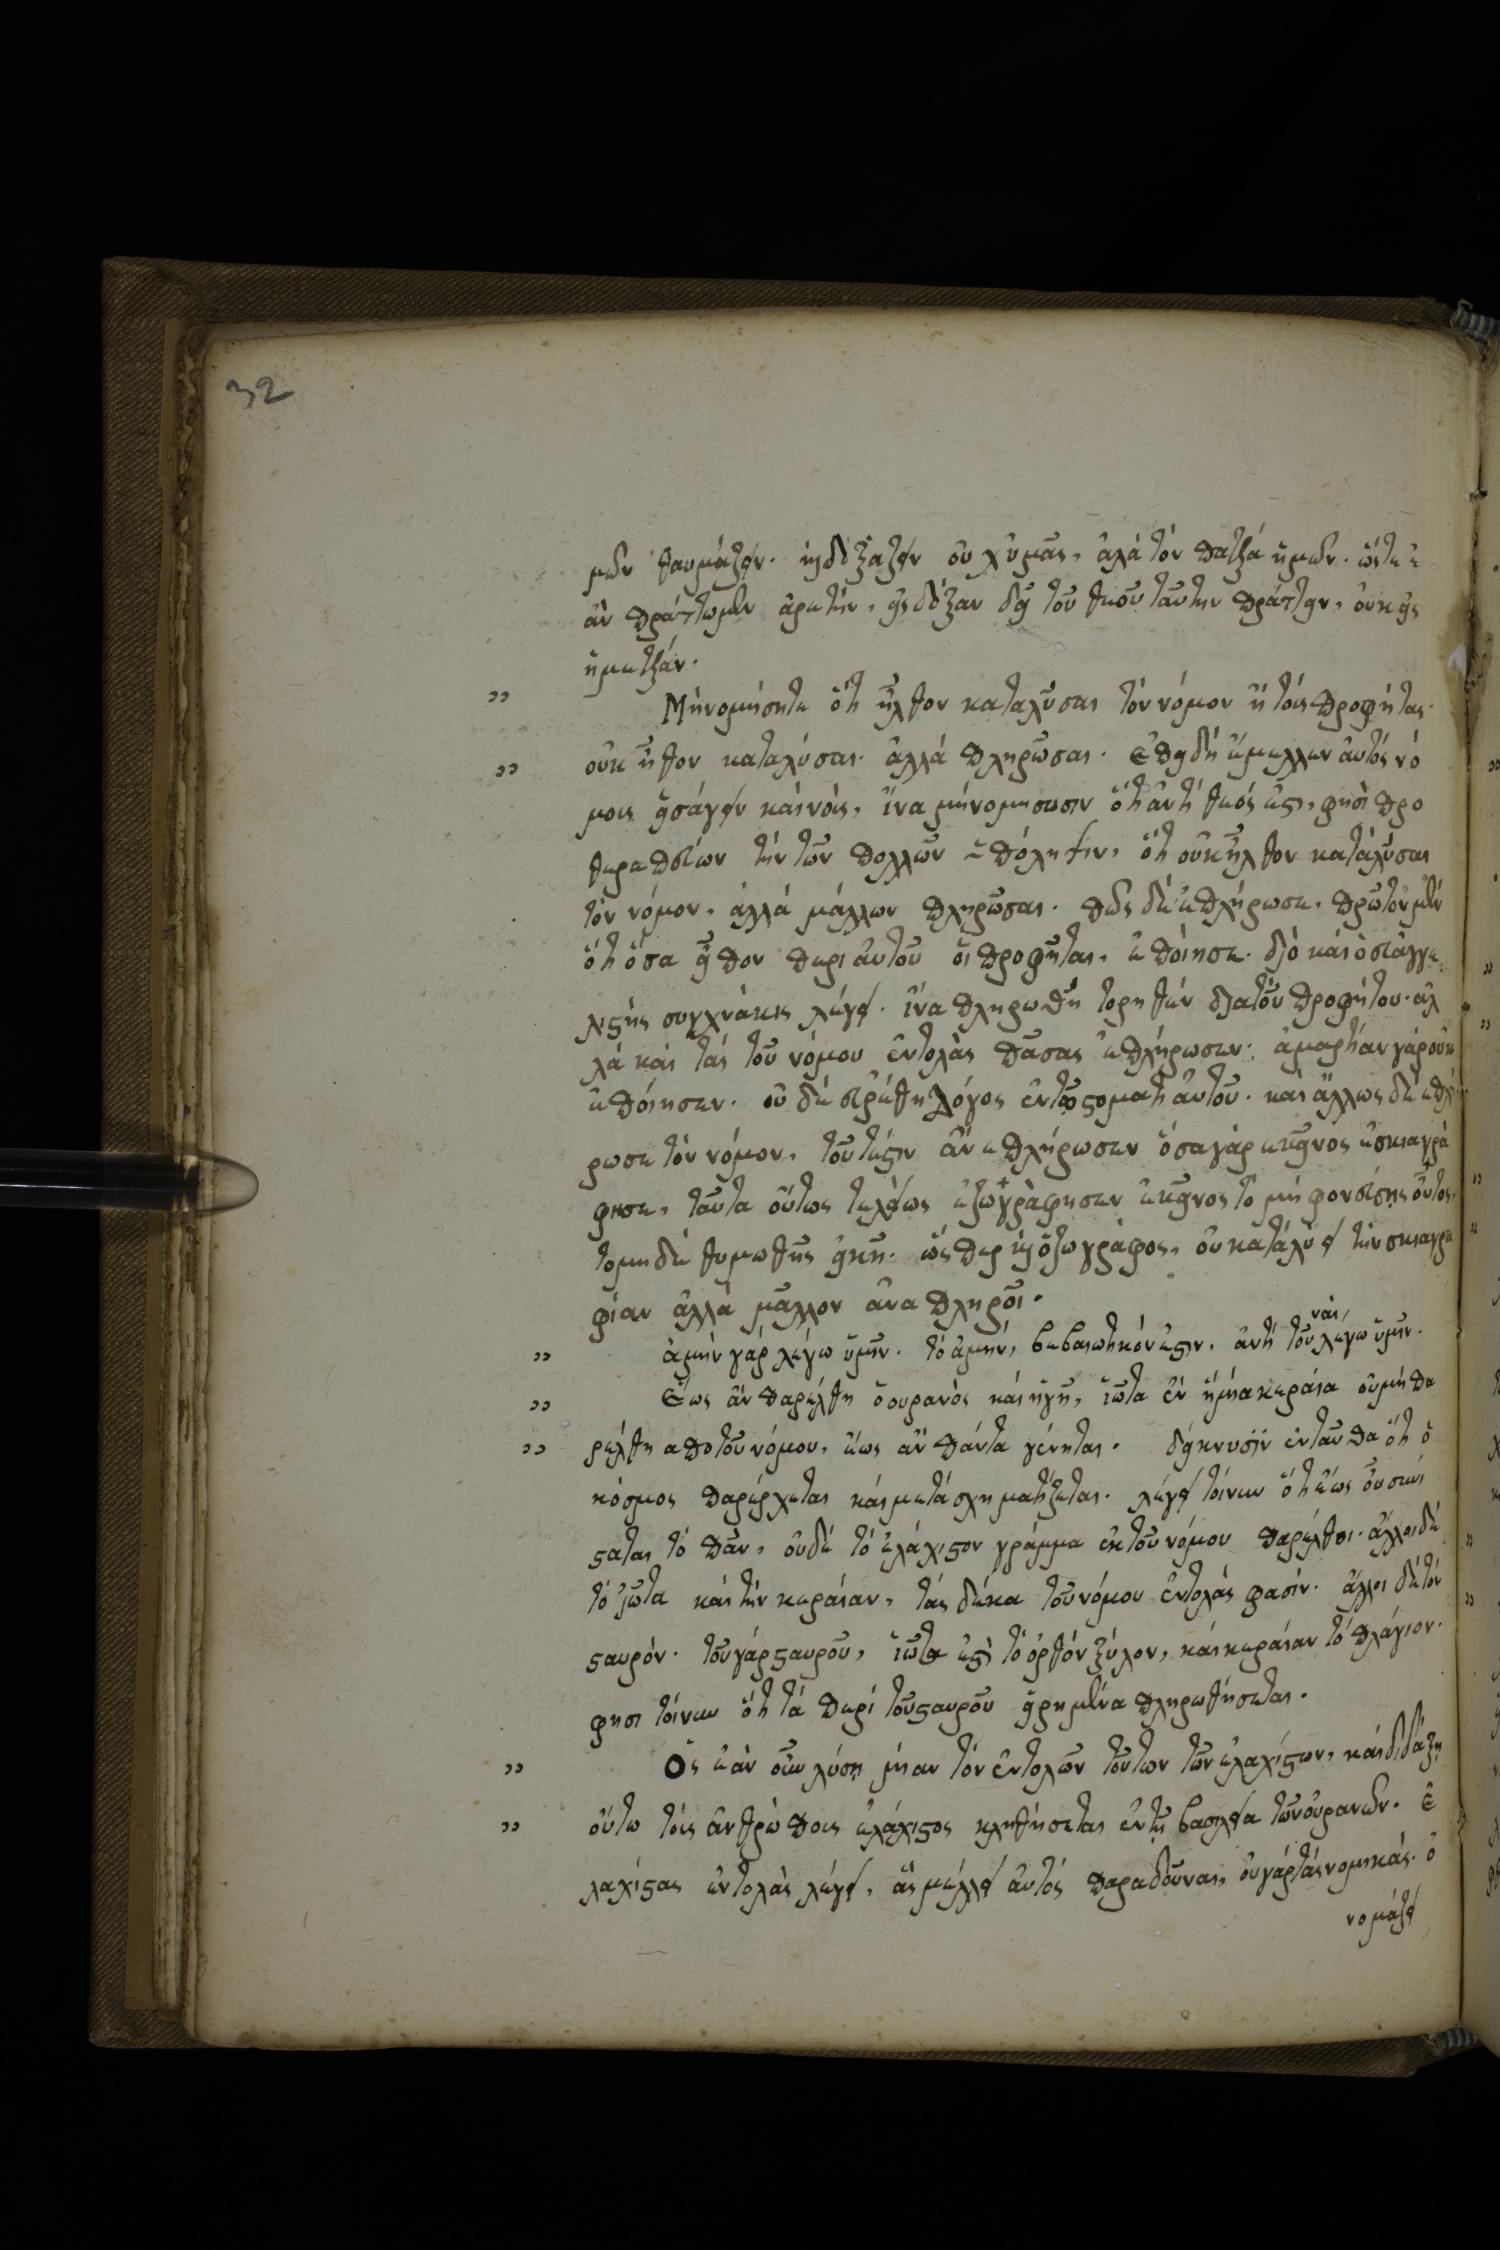 32
μῶν θαυμάζειν. ἢ δοξάζειν οὐχ ὑμᾶς, ἀλὰ τὸν πατέρα ὑμῶν. ὥστε ἐ
ὰν πράττωμεν ἀρετήν, εἰς δόξαν δεῖ τοῦ θεοῦ ταύτην πράττειν, οὐκ εἰς
ἡμετέραν.
„ Μὴνομήσητε ὅτι ἦλθον καταλῦσαι τὸν νόμον ἢ τοὺς προφήτας.
„ οὐκ ἦθον καταλύσαι. ἀλλὰ πληρῶσαι. Ἐπειδὴ ἔμελλεν αὐτὸς νό
μους εἰσάγειν καινοὺς, ἵνα μὴνομησωσιν ὅτι ἀντίθεός ἐστι, φησὶ προ
θεραπεύων τὴν τῶν πολλῶν ὑπόληψιν, ὅτι οὐκ ἦλθον καταλῦσαι
τὸν νόμον, ἀλλὰ μάλλων πληρῶσαι. πῶς δὲ ἐπλήρωσε, πρῶτον μὲν
ὅτι ὅσα εἶπον περὶ αὐτοῦ οἱ προφῆται, ἐποίησε. διὸ καὶ ὁ εὐαγγε
λιστὴς συχνάκις λέγει. ἵνα πληρωθῇ τορηθὲν διατοῦ προφήτου. ἀλ
λὰ καὶ τὰς τοῦ νόμου ἐντολὰς πᾶσας ἐπλήρωσεν. ἁμαρτίαν γάρ οὐκ
ἐποίησεν. οὐ δὲ εὑρέθη λόγος ἐντῷ στόματι αὐτοῦ. καὶ ἄλλως δὲ ἐπλή
ρωσε τὸν νόμον, τουτέστιν ἀνεπλήρωσεν ὅσα γὰρ ἐκεῖνος ἐσκιαγρά
φησε, ταῦτα οὕτως τελείως ἐζωγράφησεν ἐκεῖνος τὸ μὴ φονεύσῃς οὗτος,
τομηδὲ θυμωθῇς εἰκῆ. ὥσπερ καὶ ὁζωγράφος, οὐ καταλύει τὴν σκιαγρα
φίαν ἀλλὰ μᾶλλον ἀναπληροῖ.
„ ἀμὴν γάρ λέγω ὑμῖν. τὸ ἀμὴν, βεβαιωτικόν ἐστιν, ἀντὶ τοῦ ναὶ, λέγω ὑμῖν.
„ Ἕως ἂν παρέλθη ὁ ουρανὸς καὶ ἡγῆ, ἰῶτα ἓν ἢμήα κεραία οὐμὴ πα
„ ρέλθη απο τοῦ νόμου, ἕως ἂν πάντα γένηται. δείκνυσιν ἐνταῦθα ὅτι ὁ
κόσμος παρέρχεται καὶ μετασχηματίζεται. λέγει τοίνυν ὅτι ἕως οὗ συνί
σταται τὸ πᾶν, οὐδὲ τὸ ἐλάχιστον γράμμα ἐκ τοῦ νόμου παρέλθοι. ἄλλοι δὲ
τὸ ἰῶτα καὶ τὴν κεραίαν, τὰς δέκα τοῦ νόμου ἐντολὰς φασίν. ἄλλοι δὲ τόν
σταυρόν. τοῦ γάρ σταυροῦ, ἰῶτα ἐστὶ τὸ ὀρθόν ξύλον, καὶ κεραίαν τὸ πλάγιον.
φησι τοίνυν ὅτι τὰ περὶ τοῦ σταυροῦ εἰρημένα πληρωθήσεται.
„ Ὃς ἐὰν οὖν λύσῃ μίαν τὸν ἐντολῶν τούτων τῶν ἐλαχίστων, καὶ διδάξῃ
„ οὕτω τοὺς ἀνθρώπους ἐλάχιστος κληθήσεται ἐν τῇ βασιλεία τῶν οὐρανῶν. Ἐ
λαχίστας ἐντολὰς λέγει, ἃς μέλλει αὐτὸς παραδοῦναι, οὐ γάρ τὰς νομικὰς. ὀ
νομάζει